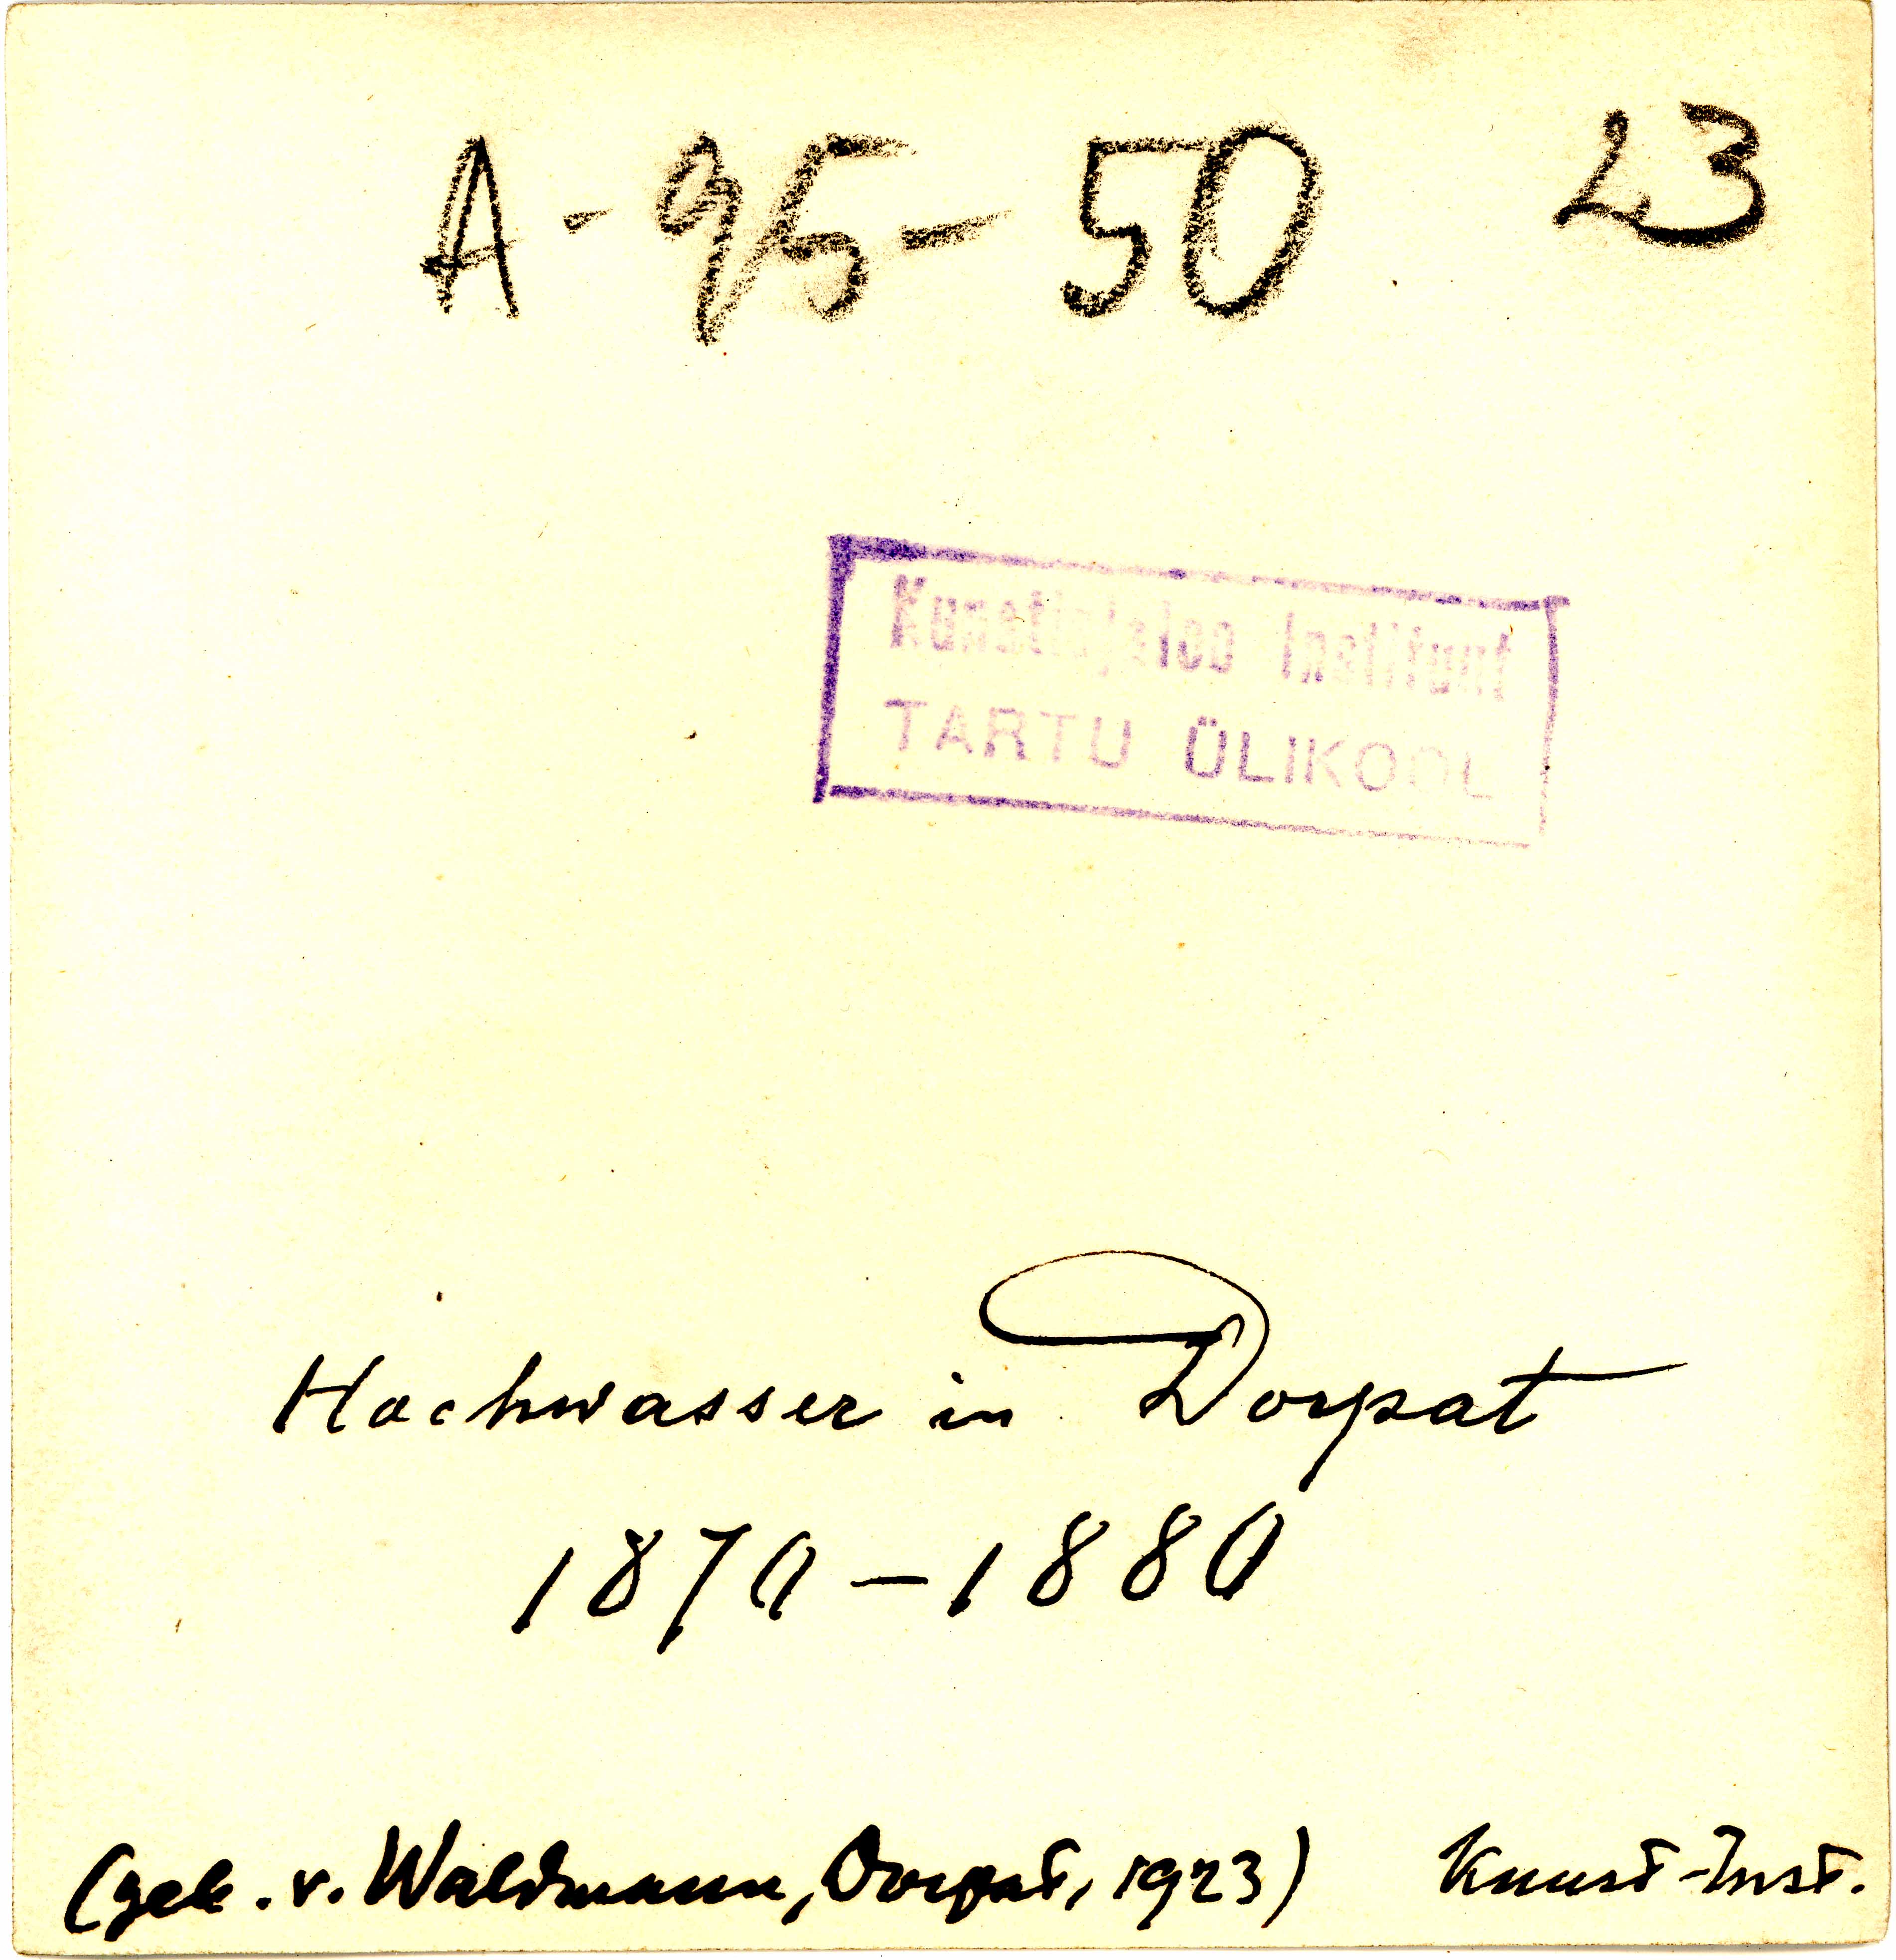 A-95-50 23
Kunstiajaloo Instituut
TARTU ÜLIKOOL
Hochwasser in Dorpat
1870-1880
(geb. v. Waldmann, Dorpat, 1923) Kunst-Inst.